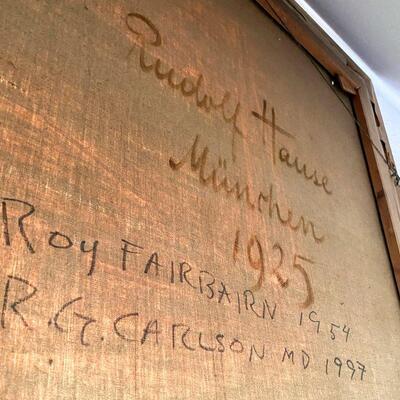 Rudolf Hause
München
1925
Roy FAIRBAIRN 1954
R.G. CARLSON MD 1997